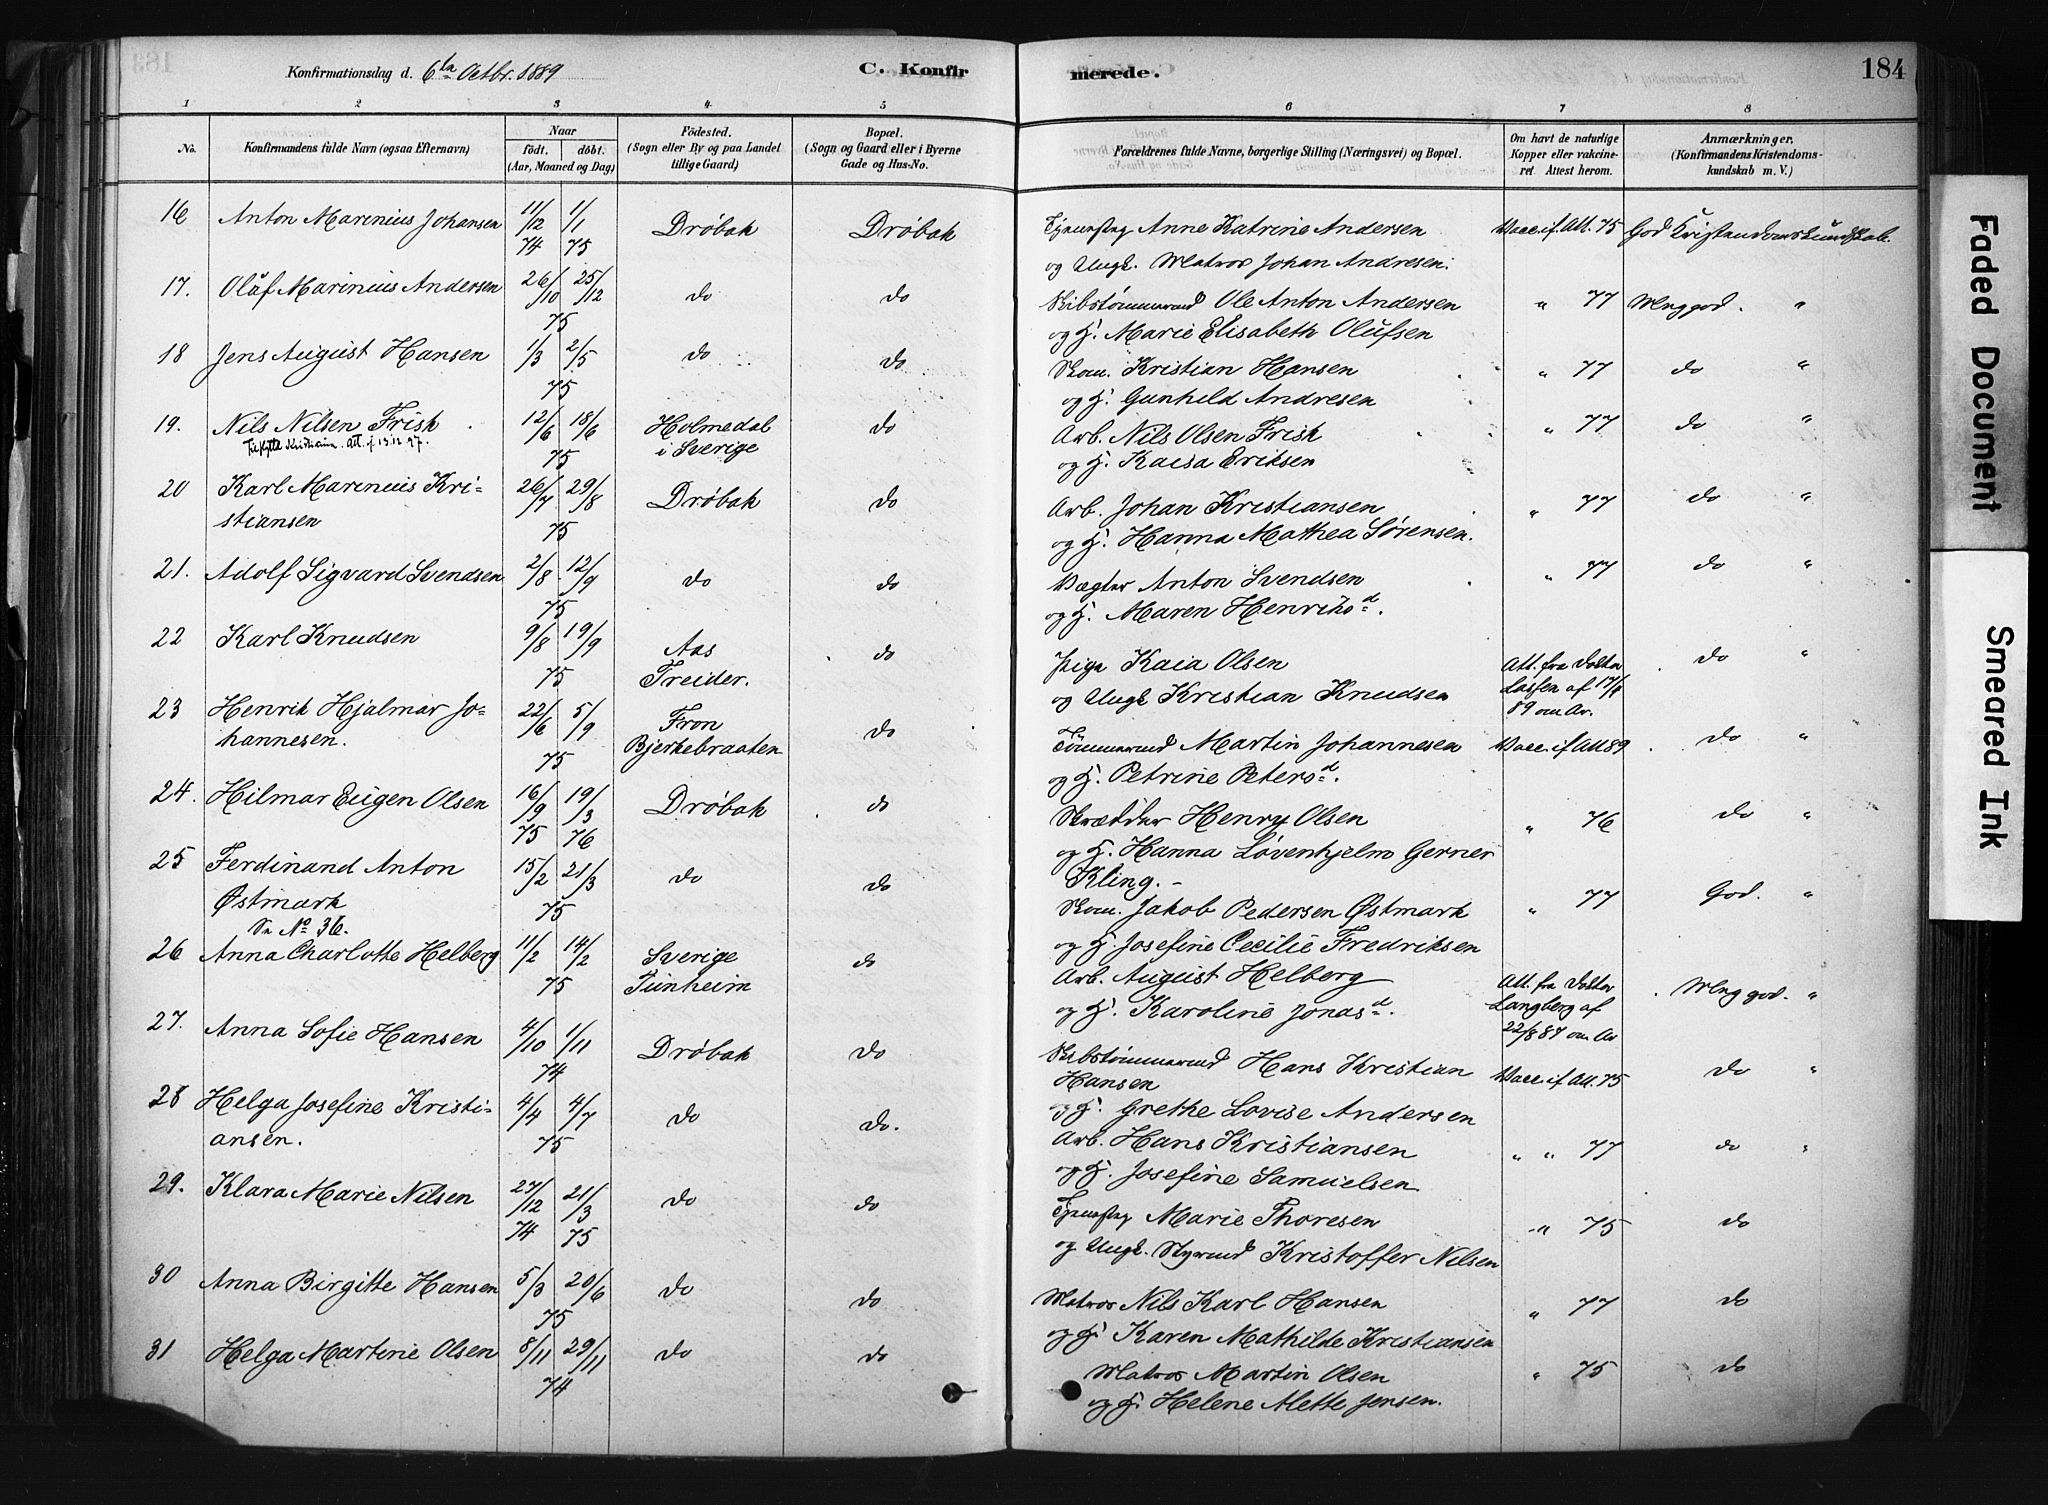 Konfirmationsdag d. 6te Octbr. 1889
C. Konfirmerede.
184
1 2 3 4 5 6 7 8
No. Konfirmandens fulde Navn (ogsaa Efternavn)
Naar født. døbt. (Aar, Maaned og Dag)
Födested. (Sogn eller By og paa Landet tillige Gaard)
Bopæl. (Sogn og Gaard eller i Byerne Gade og Hus-No.
Forældrenes fulde Navne, borgerlige Stilling (Næringsvei) og Bopæl.
Om havt de naturlige Kopper eller vakcineret. Attest herom.
Anmærkninger. (Konfirmandens Kristendomskundskab m. V.)
16 Anton Marinius Johansen 11/12 74 1/1 75 Drøbak Drøbak Anne Katrine Andersen Vacc. if. Att. 75 God Kristendomskundskab.
og Ungk. Matros Johan Andresen.
17. Oluf Marinius Andersen 26/10 25/12 75 do do Skibstømmermd Ole Anton Andersen " 77 Meg god. "
og H. Marie Elisabeth Olufsen
18 Jens August Hansen 1/3 2/5 75 do do Skom. Kristian Hansen " 77 do "
og H. Gunhild Andresen
19. Nils Nilsen Frisk 12/6 18/6 75 Holmedal i Sverige do Arb. Nils Olsen Frisk " 77 do "
Att. f 13.12.97.
og H. Kaisa Eriksen
20 Karl Marinius Kristiansen 26/7 29/8 75 Drøbak do Arb. Johan Kristiansen " 77 do "
og H. Hanna Mathea Sørensen.
21. Adolf Sigvard Svendsen 2/8 12/9 75 do do Vægter Anton Svendsen " 77 do "
og H. Maren Henriksd.
22 Karl Knudsen 9/8 19/9 75 Aas Freider. do Pige Kaia Olsen Att. fra Doktor Lassen af 17/8 89 om Av. do "
og Ungk Kristian Knudsen
23 Henrik Hjalmar Johannesen. 22/6 5/9 75 Fron Bjerkebraaten do Tømmermd Martin Johannesen Vacc. if Att 89 do "
og H. Petrine Petersd.
24. Hilmar Eugen Olsen 16/9 75 19/3 76 Drøbak do Skrædder Henry Olsen " 76 do "
og H. Hanna Løvenhjelm Gerner
Kling. -
25 Ferdinand Anton Østmark 15/2 21/3 75 do do Skom. Jakob Pedersen Østmark " 77 God. "
Se No 36.
og H. Josefine Cecilie Fredriksen
26 Anna Charlotte Helberg 11/2 14/2 75 Sverige Tunheim do Arb. August Helberg Att. fra Doktor Langberg af 22/8 84 om Av Meg god. "
og H. Karoline Jonasd.
27. Anna Sofie Hansen 4/10 1/11 74 Drøbak do Skibstømmermd Hans Kristian Hansen Vacc. if Att. 75 do "
og H. Grethe Lovise Andersen
28 Helga Josefine Kristiansen. 4/4 4/7 75 do do. Arb. Hans Kristiansen " " 77 do "
og H. Josefine Samuelsen
29. Klara Marie Nilsen 27/12 74 21/3 75 do do Marie Thoresen " 75 do
og Ungk. Styrmd Kristoffer Nilsen
30 Anna Birgitte Hansen 5/3 20/6 75 do do Matros Nils Karl Hansen " 77 do
og H Karen Mathilde Kristiansen
31 Helga Martine Olsen 8/11 29/11 74 do do Matros Martin Olsen " 75 do
og H. Helene Alette Jensen.
Faded Document
Smeared Ink